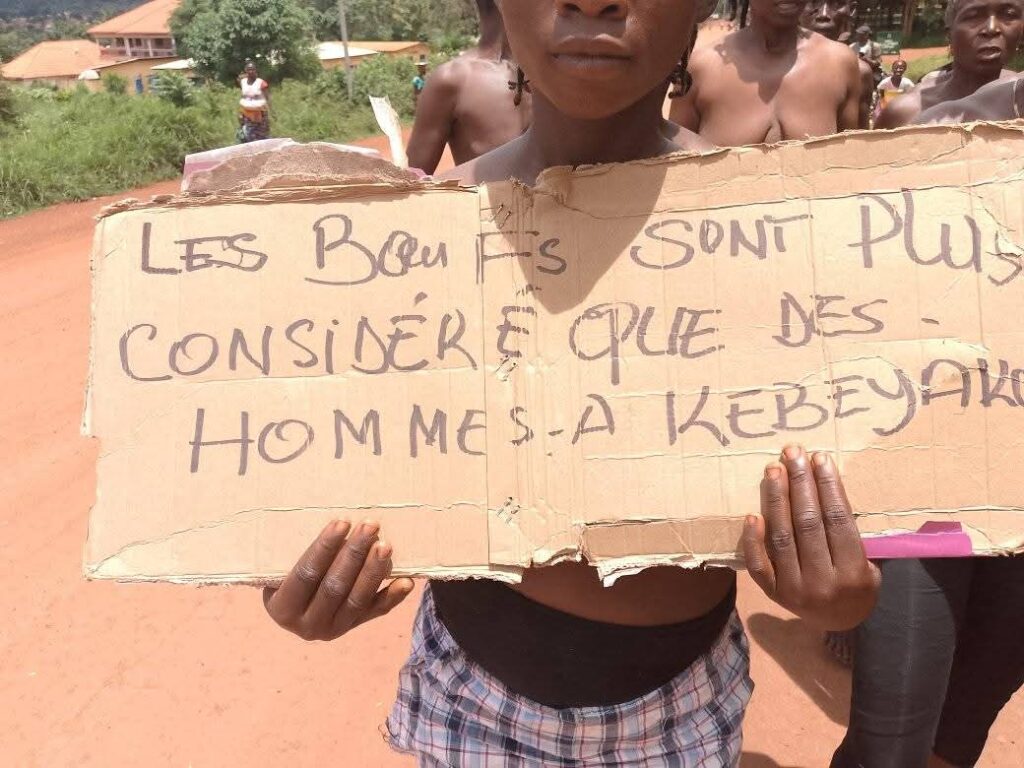 LES BŒUFS SONT PLUS
CONSIDÉRÉ QUE DES -
HOMMES - A KEBEYAKO